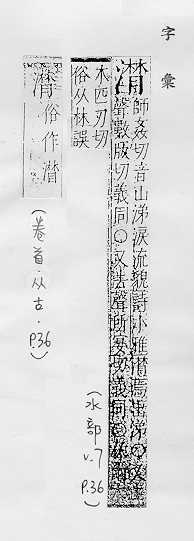 字彙
潸 師姦切音山涕淚流貌詩小雅潸焉出涕○又
聲數版切義同○又去聲所晏切義同○
木匹刃切
俗从林誤
(水部 v.7 P.36)
潸 俗作
(卷首.从古.P.36)